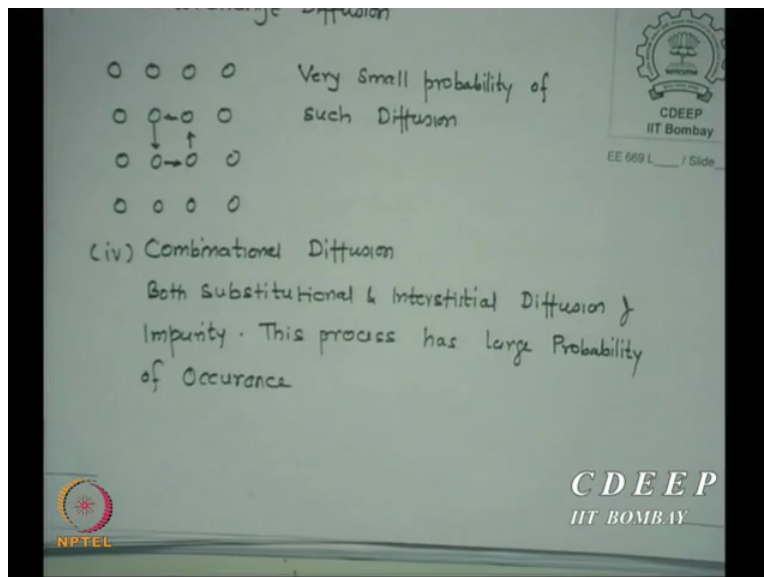 Diffusion
Very Small probability of
such Diffusion
CDEEP
IIT Bombay
EE 669 L____ / Slide_
(iv) Combinational Diffusion
Both Substitutional & Interstitial Diffusion of
Impurity. This process has large Probability
of Occurance
CDEEP
IIT BOMBAY
NPTEL